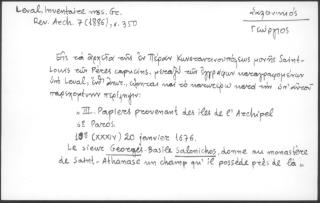 Laval, Inventaire mss. Gr.
Rev. Arch. 7 (1886), σ. 350
Σαλονικιός
Γεώργιος
Εἰς τὰ ἀρχεῖα τῆς ἐν Πέραν Κωνσταντινουπόλεως μονῆς Saint-
Louis τῶν Pères capucins, μεταξὺ τῶν ἐγγράφων καταγραφομένων
ὑπὸ Laval, καὶ τὸ κατωτέρω κατὰ τὴν ὑπ' αὐτοῦ
παρεχομένην περίληψιν:
"III. Papiers provenant des îles de l'Archipel
4º Paros.
10º (XXXIV) 20 janvier 1676.
Le sieur Georges-Basile Salonichos, donne au monastère
de Saint-Athanase un champ qu'il possède près de là"